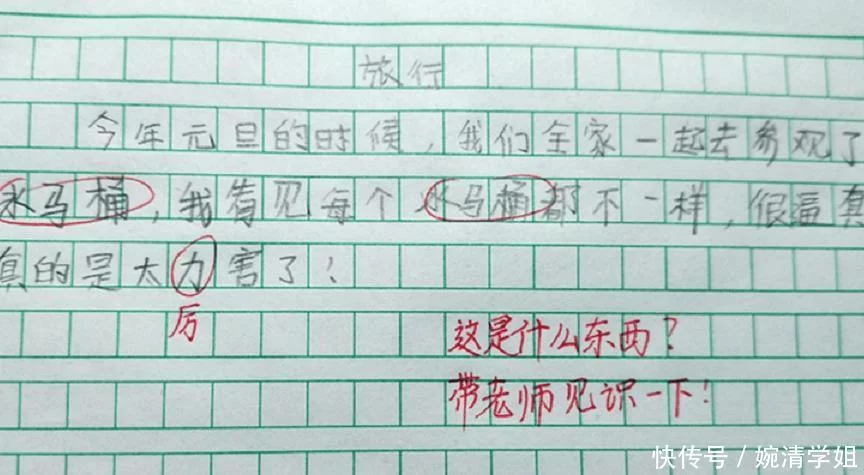 旅行
今年元旦的时候，我们全家一起去参观了
水马桶，我看见每个水马桶都不一样，很逼真
真的是太力害了！
厉
这是什么东西？
带老师见识一下！
快传号／婉清学姐